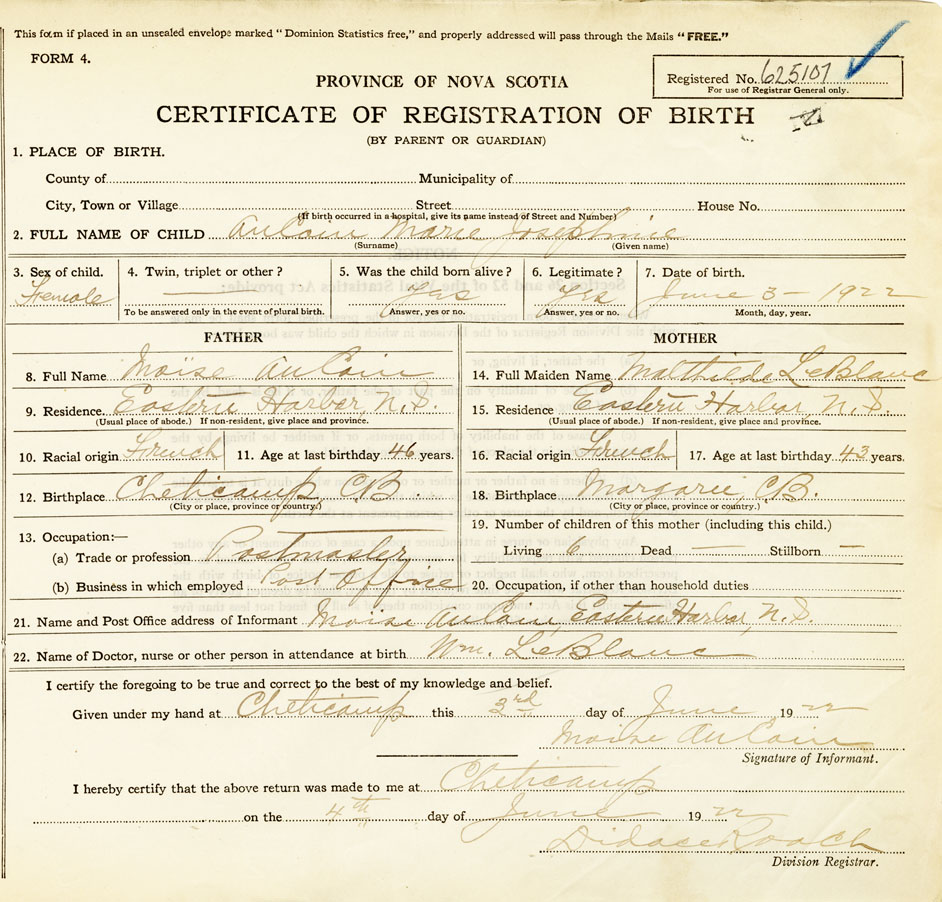 This form if placed in an unsealed envelope marked "Dominion Statistics free," and properly addressed will pass through the Mails "FREE."
FORM 4.
Registered No. 625107
For use of Registrar General only.
PROVINCE OF NOVA SCOTIA
CERTIFICATE OF REGISTRATION OF BIRTH
(BY PARENT OR GUARDIAN)
1. PLACE OF BIRTH.
County of Municipality of
City, Town or Village Street House No.
(If birth occurred in a hospital, give its name instead of Street and Number)
2. FULL NAME OF CHILD AuCoin Marie Josephine
(Surname) (Given name)
3. Sex of child. 4. Twin, triplet or other? 5. Was the child born alive? 6. Legitimate? 7. Date of birth.
Female — yes yes June 3 - 1922
To be answered only in the event of plural birth. Answer, yes or no. Answer, yes or no. Month, day, year.
FATHER MOTHER
8. Full Name Moïse AuCoin 14. Full Maiden Name Mathilde LeBlanc
9. Residence Eastern Harbor, N.S. 15. Residence Eastern Harbor, N.S.
(Usual place of abode.) If non-resident, give place and province. (Usual place of abode.) If non-resident, give place and province.
10. Racial origin French 11. Age at last birthday 46 years. 16. Racial origin French 17. Age at last birthday 43 years.
12. Birthplace Cheticamp, C.B. 18. Birthplace Margaree, C.B.
(City or place, province or country.) (City or place, province or country.)
13. Occupation:— 19. Number of children of this mother (including this child.)
(a) Trade or profession Postmaster Living 6 Dead — Stillborn —
(b) Business in which employed Post Office 20. Occupation, if other than household duties
21. Name and Post Office address of Informant Moïse AuCoin, Eastern Harbor, N.S.
22. Name of Doctor, nurse or other person in attendance at birth Wm. LeBlanc
I certify the foregoing to be true and correct to the best of my knowledge and belief.
Given under my hand at Cheticamp this 3rd day of June 1922
Moïse AuCoin
Signature of Informant.
I hereby certify that the above return was made to me at Cheticamp
on the 4th day of June 1922
Didace Roach
Division Registrar.